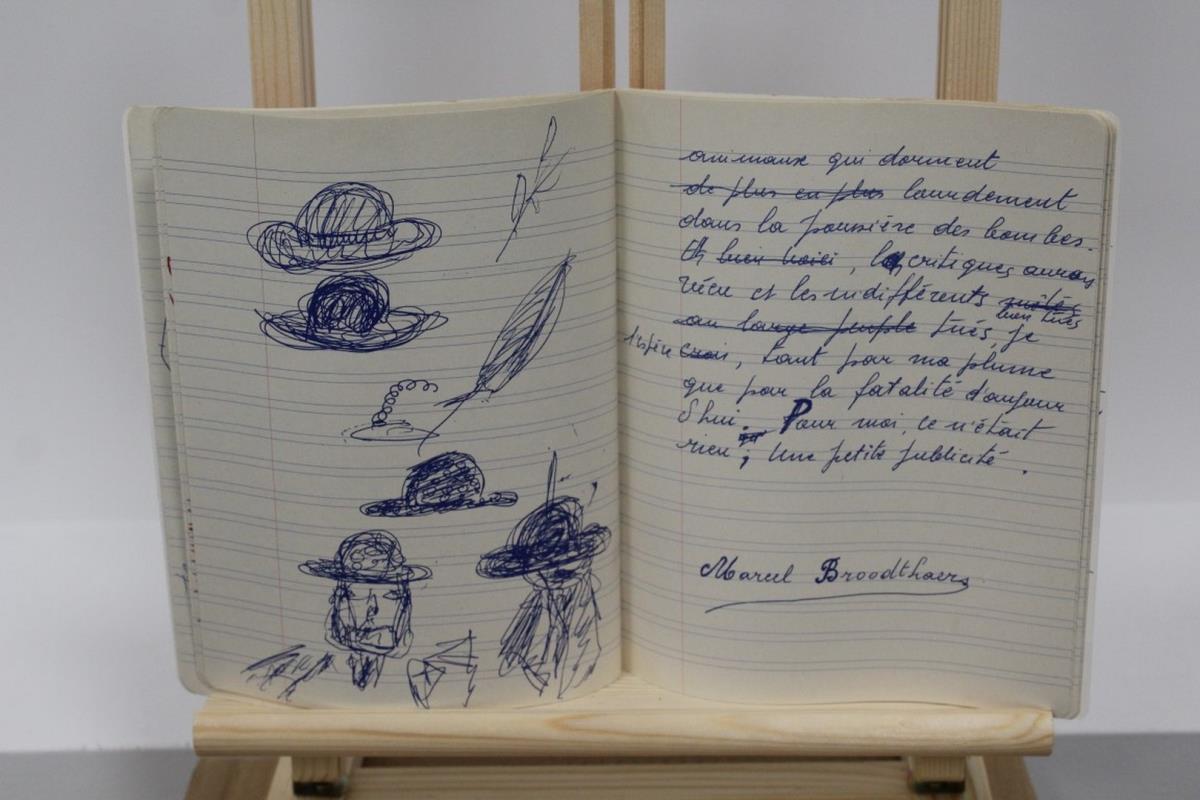 animaux qui dorment
de plus en plus lourdement
dans la poussière des bombes.
bien voici, les critiques auron
vécu et les indifférents
bien tués
au large peuple tués, je
j'espère crois, tant par ma plume
que par la fatalité d'aujour
d'hui. Pour moi, ce n'était
rien ; Une petite publicité.
Marcel Broodthaers